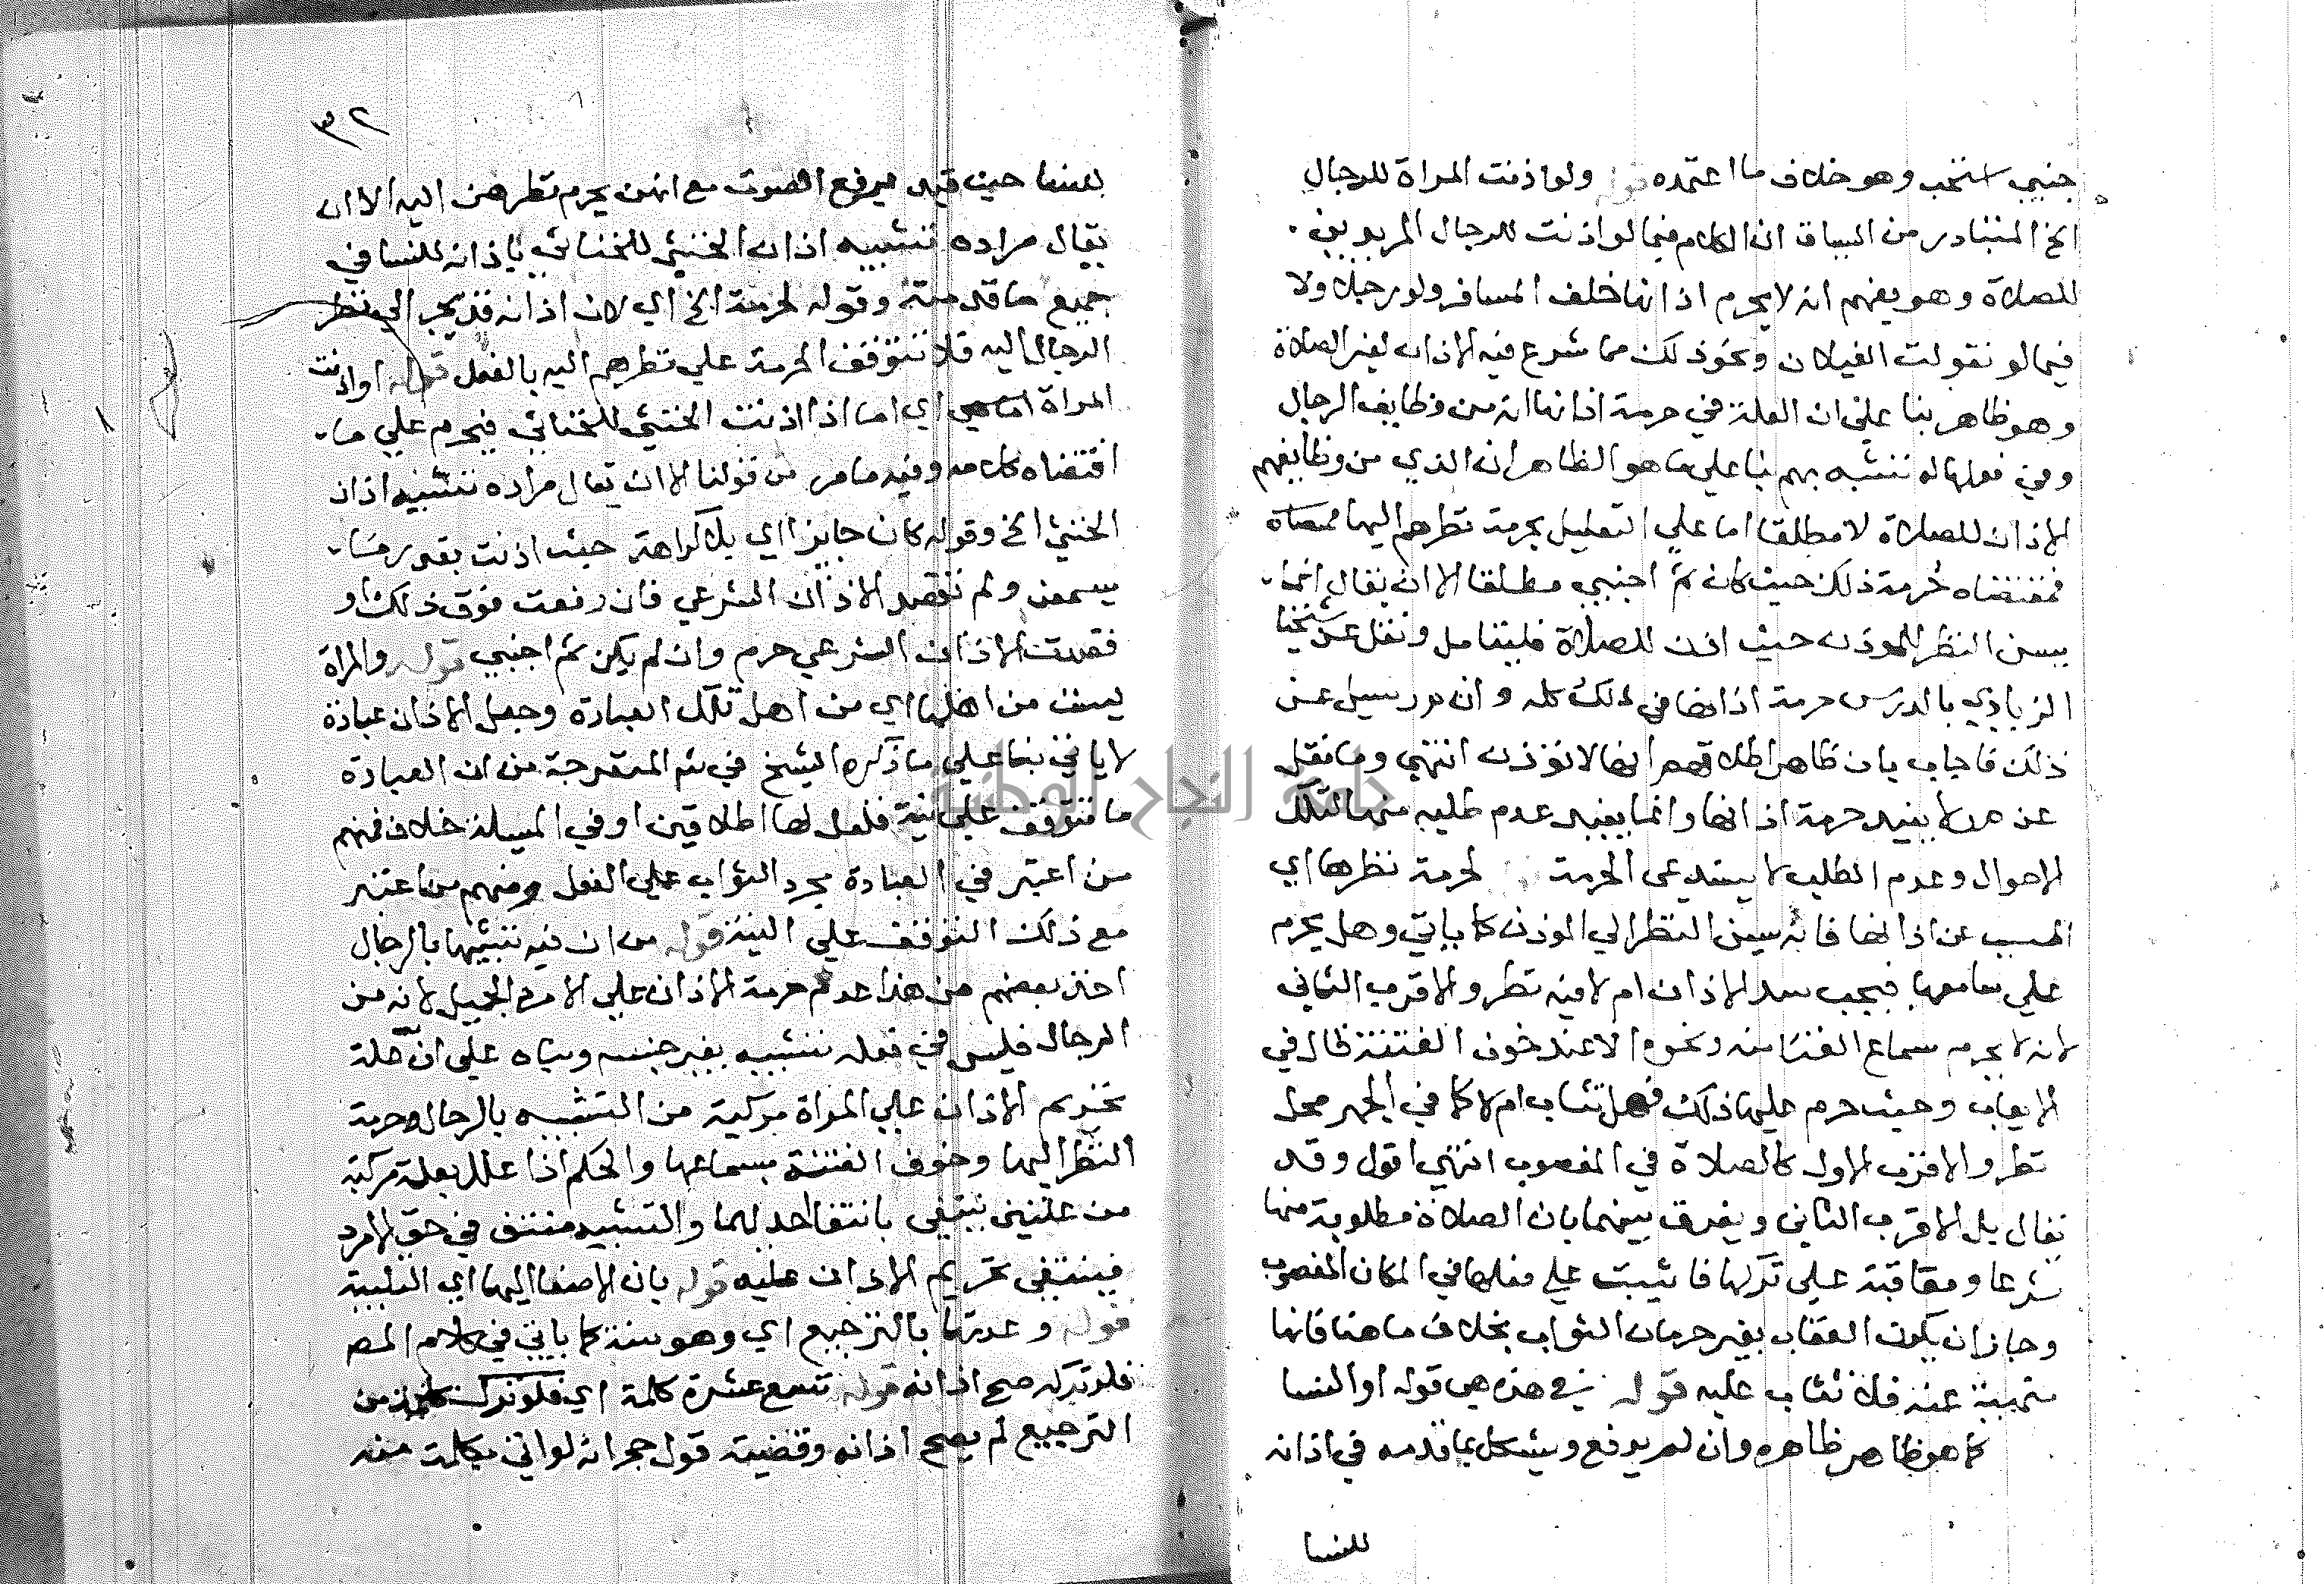 جنبي انتهى وهو خلاف ما اعتمده قوله ولو اذنت المراة للرجال
الخ المتبادر من السياق ان الكلام فيما لو اذنت للرجال المريدين
للصلاة وهو يفهم انه لا يحرم اذانها خلف المسافر ولو رجلا ولا
فيما لو تغولت الغيلان ونحو ذلك مما شرع فيه الاذان لغير الصلاة
وهو ظاهر بنا على ان العلة في حرمة اذانها انه من وظايف الرجال
وفي فعلها له تشبه بهم بنا على ما هو الظاهر ان الذي من وظايفهم
الاذان للصلاة لا مطلقا اما على التعليل بحرمة نظرهم اليها
فمقتضاه حرمة ذلك حيث كان ثم اجنبي مطلقا الا ان يقال انما
يسن النظر للموذن حيث اذن للصلاة فليتامل ونقل عن شيخنا
الزيادي بالدرس حرمة اذانها في ذلك كله وانه سيل عن
ذلك فاجاب بان ظاهر اطلاقهم انها لا توذن انتهى وما نقل
عنه لا يفيد حرمة اذانها وانما يفيد عدم طلبه منها لتلك
الاحوال وعدم الطلب لا يستدعي الحرمة لحرمة نظرها اي
المسبب عن اذانها فانه يسن النظر الي الموذن كما ياتي وهل يحرم
علي سامعها فيجب سد الاذان ام لا فيه نظر والاقرب الثاني
لانه لا يحرم سماع الغنا منه ونحوه الا عند خوف الفتنة قال في
الايعاب وحيث حرم عليها ذلك فهل تثاب ام لا كما في الجهر محل
نظر والاقرب الاول كالصلاة في المغصوب انتهى اقول وقد
يقال بل الاقرب الثاني ويفرق بينهما بان الصلاة مطلوبة منها
شرعا ومعاقبة على تركها فاثيبت علي فعلها في المكان المغصوب
وجاز ان يكون العقاب بغير حرمان الثواب بخلاف ما هنا فانها
منهية عنه فلا تثاب عليه قوله في هذه هي قوله او النسا
كما هو ظاهر ظاهره وان لم يرفع ويشكل بما قدمه في اذانه
للنسا
٣٢
للنسا حيث قيد برفع الصوت مع انهن يحرم نظرهن اليه الا ان
يقال مراده تشبيه اذان الخنثي للخناثي باذانه للنسا في
جميع ما قدمته وقوله لحرمة الخ اي لان اذانه قد يجر الي نظر
الرجال اليه فلا تتوقف الحرمة علي نظرهم اليه بالفعل قوله او اذنت
المراة اي اما اذا اذنت الخنثي للخناثي فيحرم علي ما
اقتضاه كلامه وفيه ما مر من قولنا الا ان يقال مراده تشبيه اذان
الخنثي الخ وقوله كان جايزا اي بلا كراهة حيث اذنت بقدر ما
يسمعن ولم تقصد الاذان الشرعي فان رفعت فوق ذلك او
قصدت الاذان الشرعي حرم وان لم يكن ثم اجنبي قوله والمراة
ليست من اهلها اي من اهل تلك العبادة وجعل الاذان عبادة
لا ياتي بنا علي ما ذكره الشيخ في شم المنفرجة من ان العبادة
ما تتوقف علي نية فلعل لها اطلاقين او في المسيلة خلاف فمنهم
من اعتبر في العبادة مجرد الثواب علي الفعل ومنهم من اعتبر
مع ذلك التوقف علي النية قوله من ان فيه تشبيها بالرجال
اخذ بعضهم من هذا عدم حرمة الاذان علي الامرد الجميل لانه من
الرجال فليس في فعله تشبيه بغير جنسه وبناه علي ان علة
تحريم الاذان علي المراة مركبة من التشبه بالرجال وحرمة
النظر اليها وخوف الفتنة بسماعها والحكم اذا علل بعلة مركبة
من علتين ينتفي بانتفا احدايهما والتشبيه منتف في حق الامرد
فينتفي تحريم الاذان عليه قوله بان الاصغا اليها اي التلبية
قوله وعدتها بالترجيع اي وهو سنة كما ياتي في كلام المص
فلو تركه صح اذانه قوله تسع عشرة كلمة اي فلو ترك كلمة من
الترجيع لم يصح اذانه وقضية قول حجر انه لو اتي بكلمة منه
جامعة النجاح الوطنية